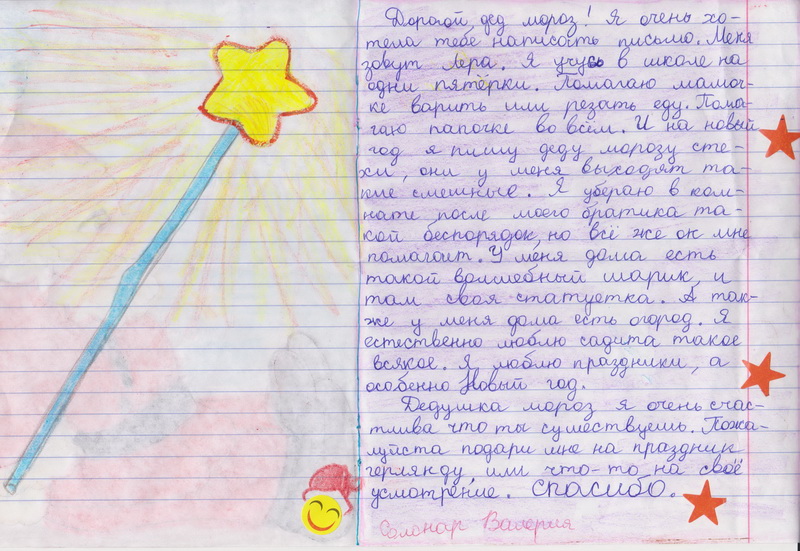 Дорогой дед мороз! Я очень хо-
тела тебе написать письмо. Меня
зовут Лера. Я учусь в школе на
одни пятёрки. Помагаю мамоч-
ке варить или резать еду. Пома-
гаю папочке во всём. И на новый
год я пишу деду морозу сте-
хи, они у меня выходят та-
кие смешные. Я убераю в ком-
нате после моего братика та-
кой беспорядок, но всё же он мне
помагоит. У меня дома есть
такой волшебный шарик, и
там своя статуетка. А так-
же у меня дома есть огород. Я
естественно люблю садита такое
всякое. Я люблю праздники, а
особенно Новый год.
Дедушка мороз я очень счас-
тлива что ты существуешь. Пожа-
луйста подари мне на праздник
герлянду, или что-то на своё
усмотрение. Спасибо.
Солонар Валерия